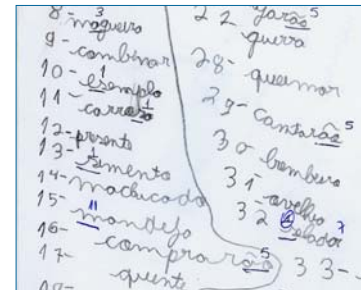 8- magueiro 3
9- combinar
10- esemplo 1
11- carroso 1
12- presente
13- simento 1
14- machucado
15- mandejo 11
16- comprarão 5
17- quente
garão 5
guerra
28- queimar
29- cantarão 5
30- bombeiro
31- ovelhio
32 elador
33-